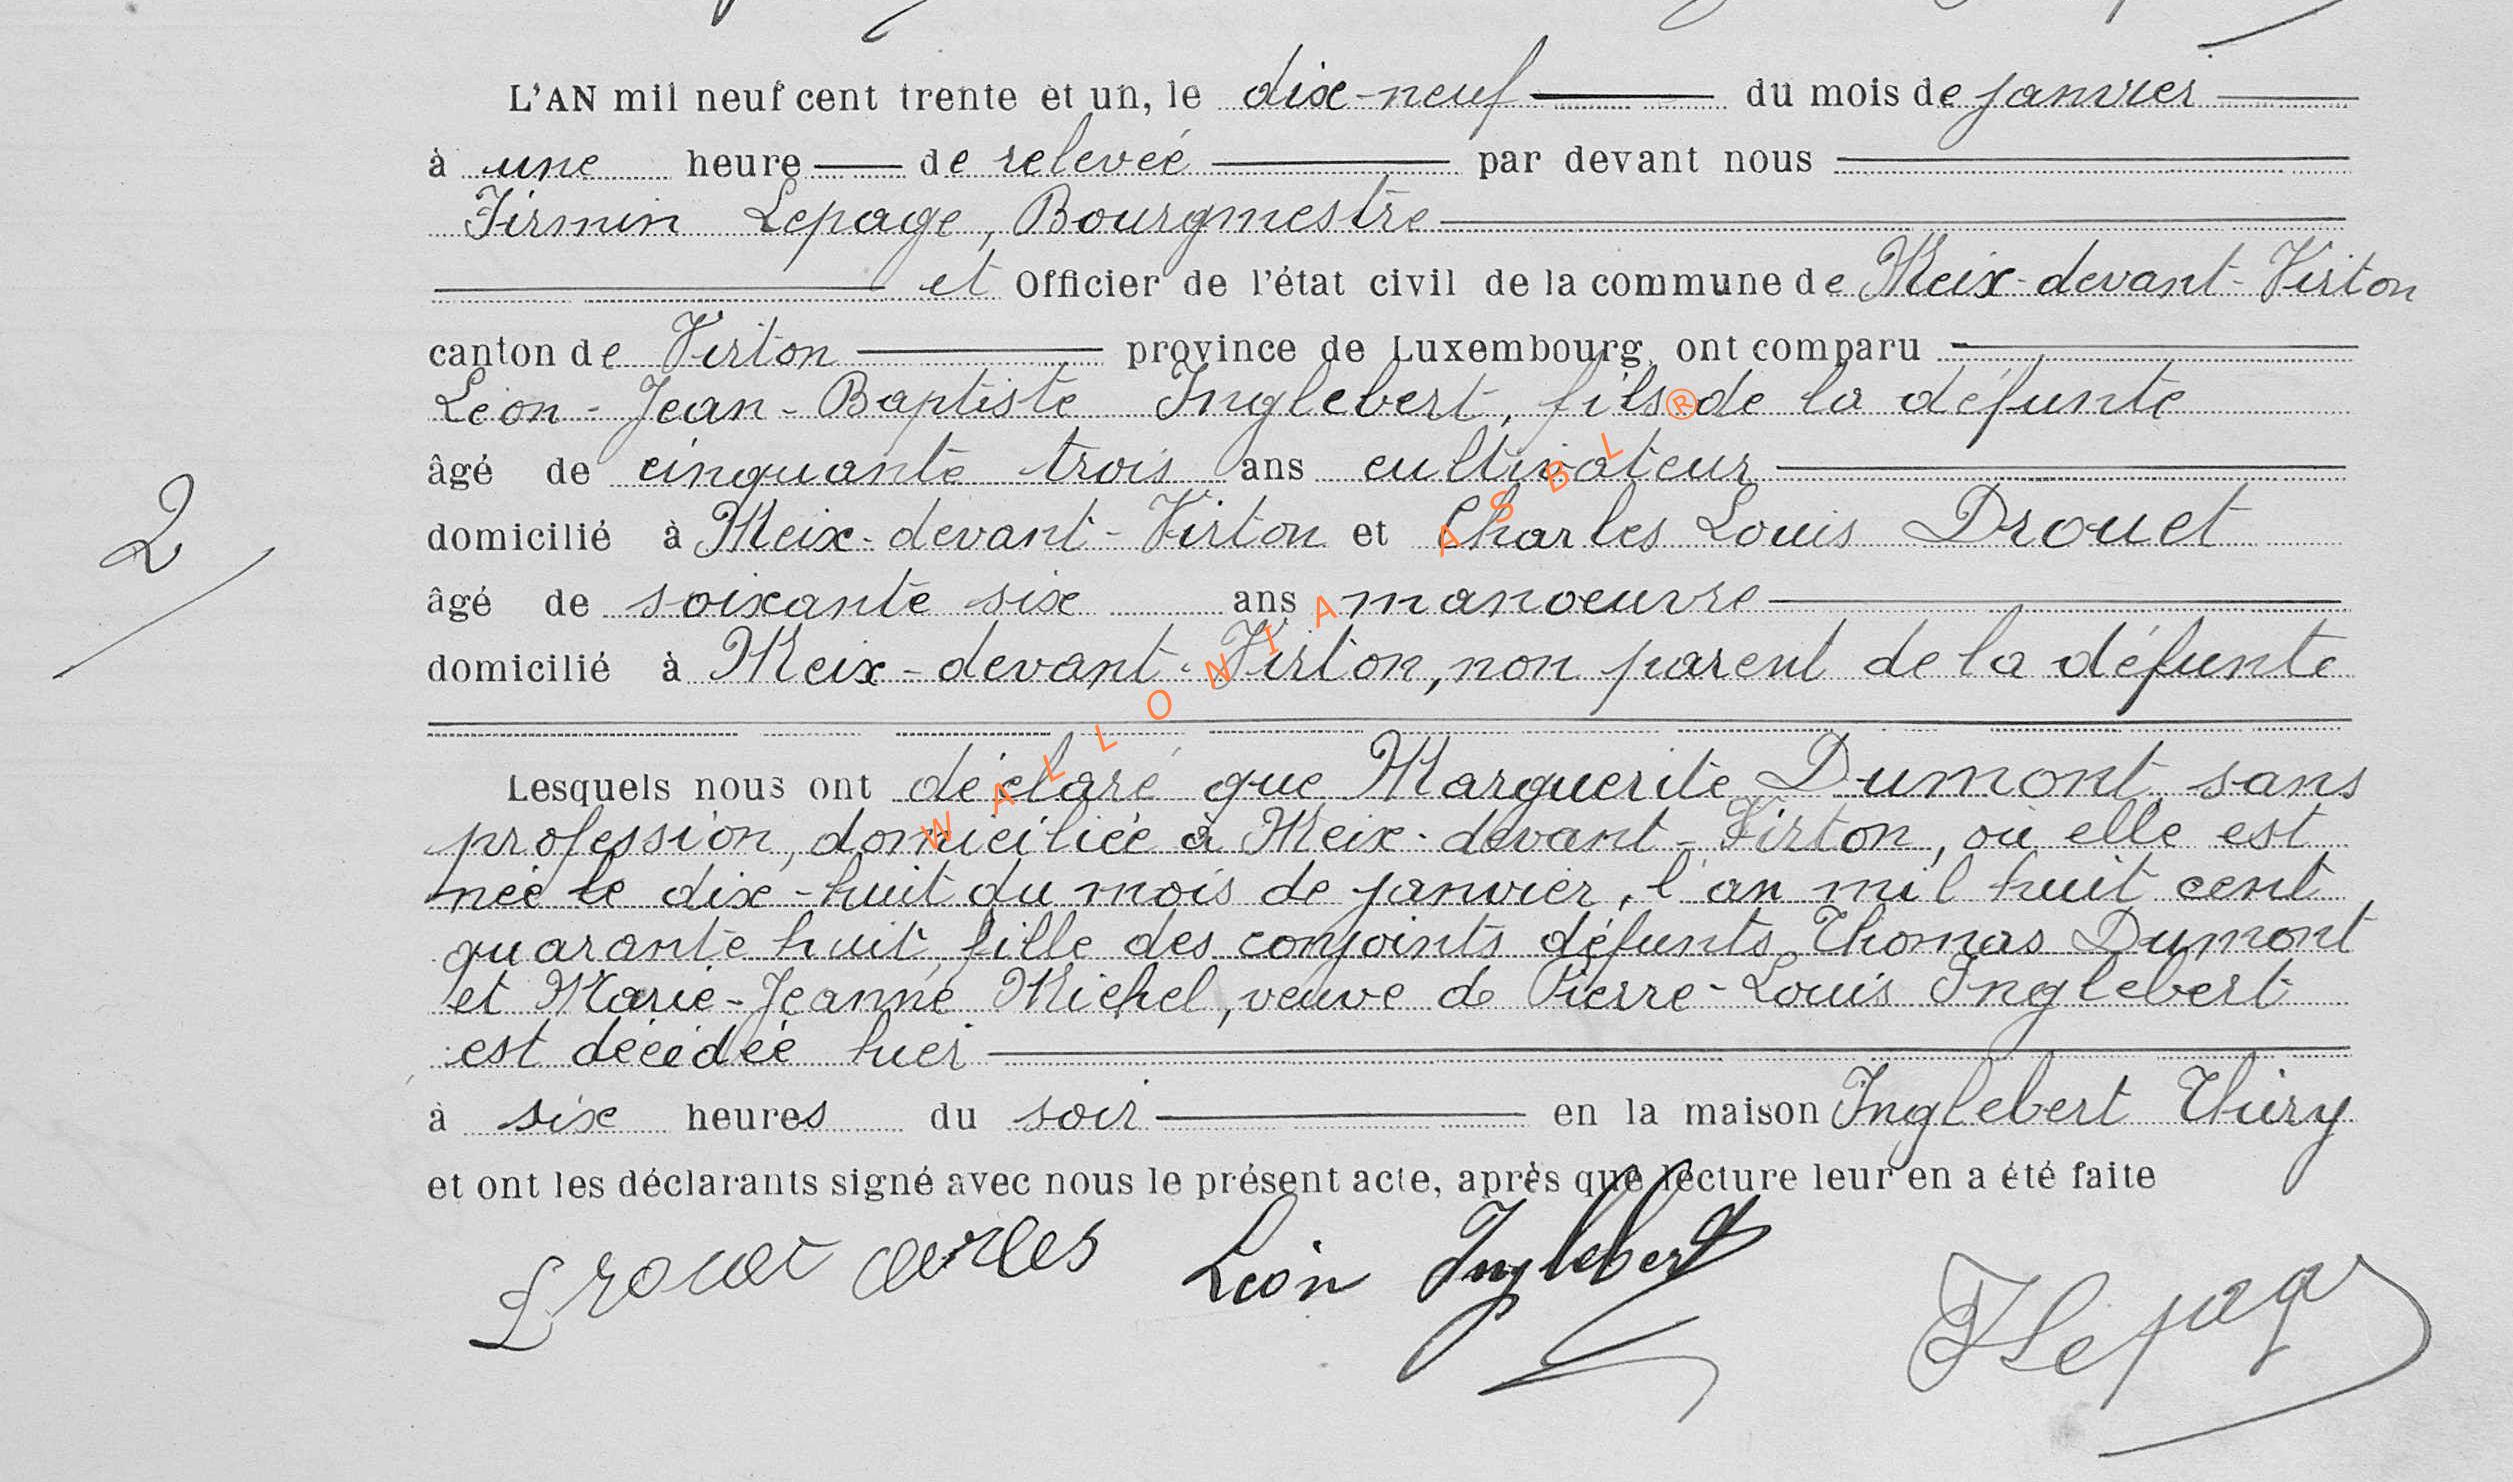 L'AN mil neuf cent trente et un, le dix-neuf du mois de janvier
à une heure de relevée par devant nous
Firmin Lepage, Bourgmestre
et Officier de l'état civil de la commune de Meix-devant-Virton
canton de Virton province de Luxembourg, ont comparu
Léon-Jean-Baptiste Inglebert, fils de la défunte
âgé de cinquante trois ans cultivateur
domicilié à Meix-devant-Virton et Charles Louis Drouet
âgé de soixante six ans manoeuvre
domicilié à Meix-devant-Virton, non parent de la défunte
2
Lesquels nous ont déclaré que Marguerite Dumont, sans
profession, domiciliée à Meix-devant-Virton, où elle est
née le dix-huit du mois de janvier, l'an mil huit cent
quarante huit, fille des conjoints défunts Thomas Dumont
et Marie-Jeanne Michel, veuve de Pierre-Louis Inglebert
est décédée hier
à six heures du soir en la maison Inglebert Thiry
et ont les déclarants signé avec nous le présent acte, après que lecture leur en a été faite
Drouet carles Léon Inglebert FLepage
WALLONIA ASBL ®